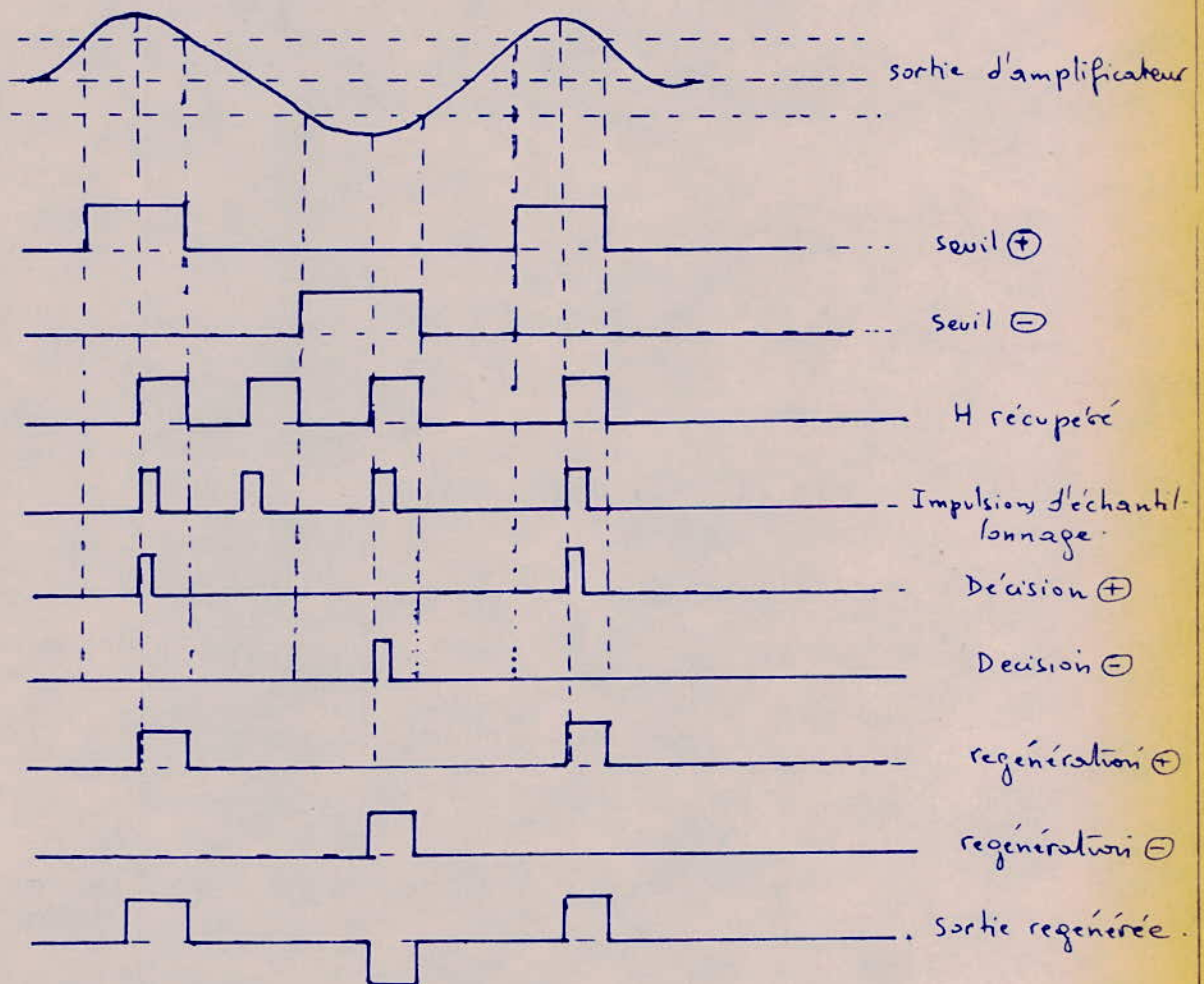 sortie d'amplificateur
seuil ⊕
seuil ⊖
H récupéré
Impulsions d'échantil-
lonnage.
Décision ⊕
Decision ⊖
regénération ⊕
regénération ⊖
sortie regénérée.